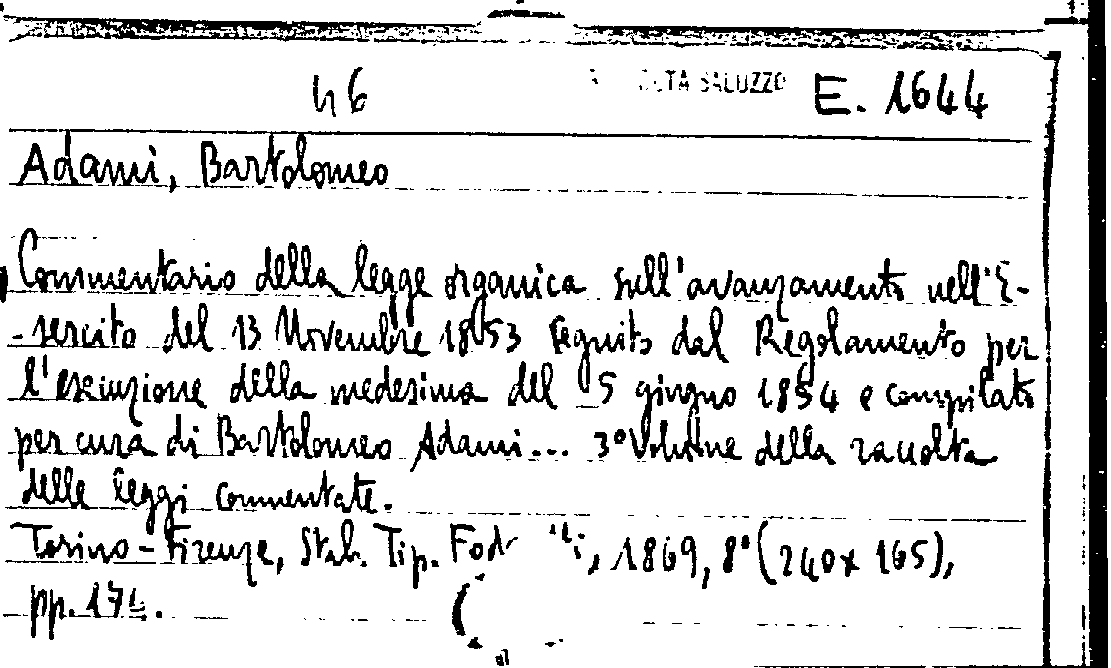 46 SALUZZO E. 1644
Adami, Bartolomeo
Commentario della legge organica sull'avanzamento nell'E-
-sercito del 13 Novembre 1853 seguito dal Regolamento per
l'esecuzione della medesima del 5 giugno 1854 e compilato
per cura di Bartolomeo Adami... 3° Volume della raccolta
delle leggi commentate.
Torino - Firenze, Stab. Tip. 1869, 8° (240x165),
pp.